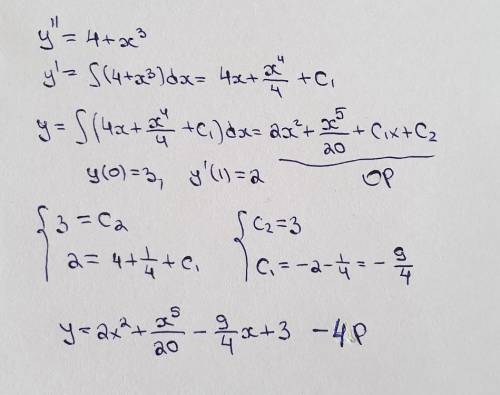 y'' = 4+x³
y' = ∫(4+x³)dx = 4x + x⁴/4 + C₁
y = ∫(4x + x⁴/4 + C₁)dx = 2x² + x⁵/20 + C₁x + C₂
y(0)=3, y'(1)=2 ОР
{ 3 = C₂ { C₂ = 3
2 = 4 + 1/4 + C₁ C₁ = -2 - 1/4 = - 9/4
y = 2x² + x⁵/20 - 9/4 x + 3 - ЧР